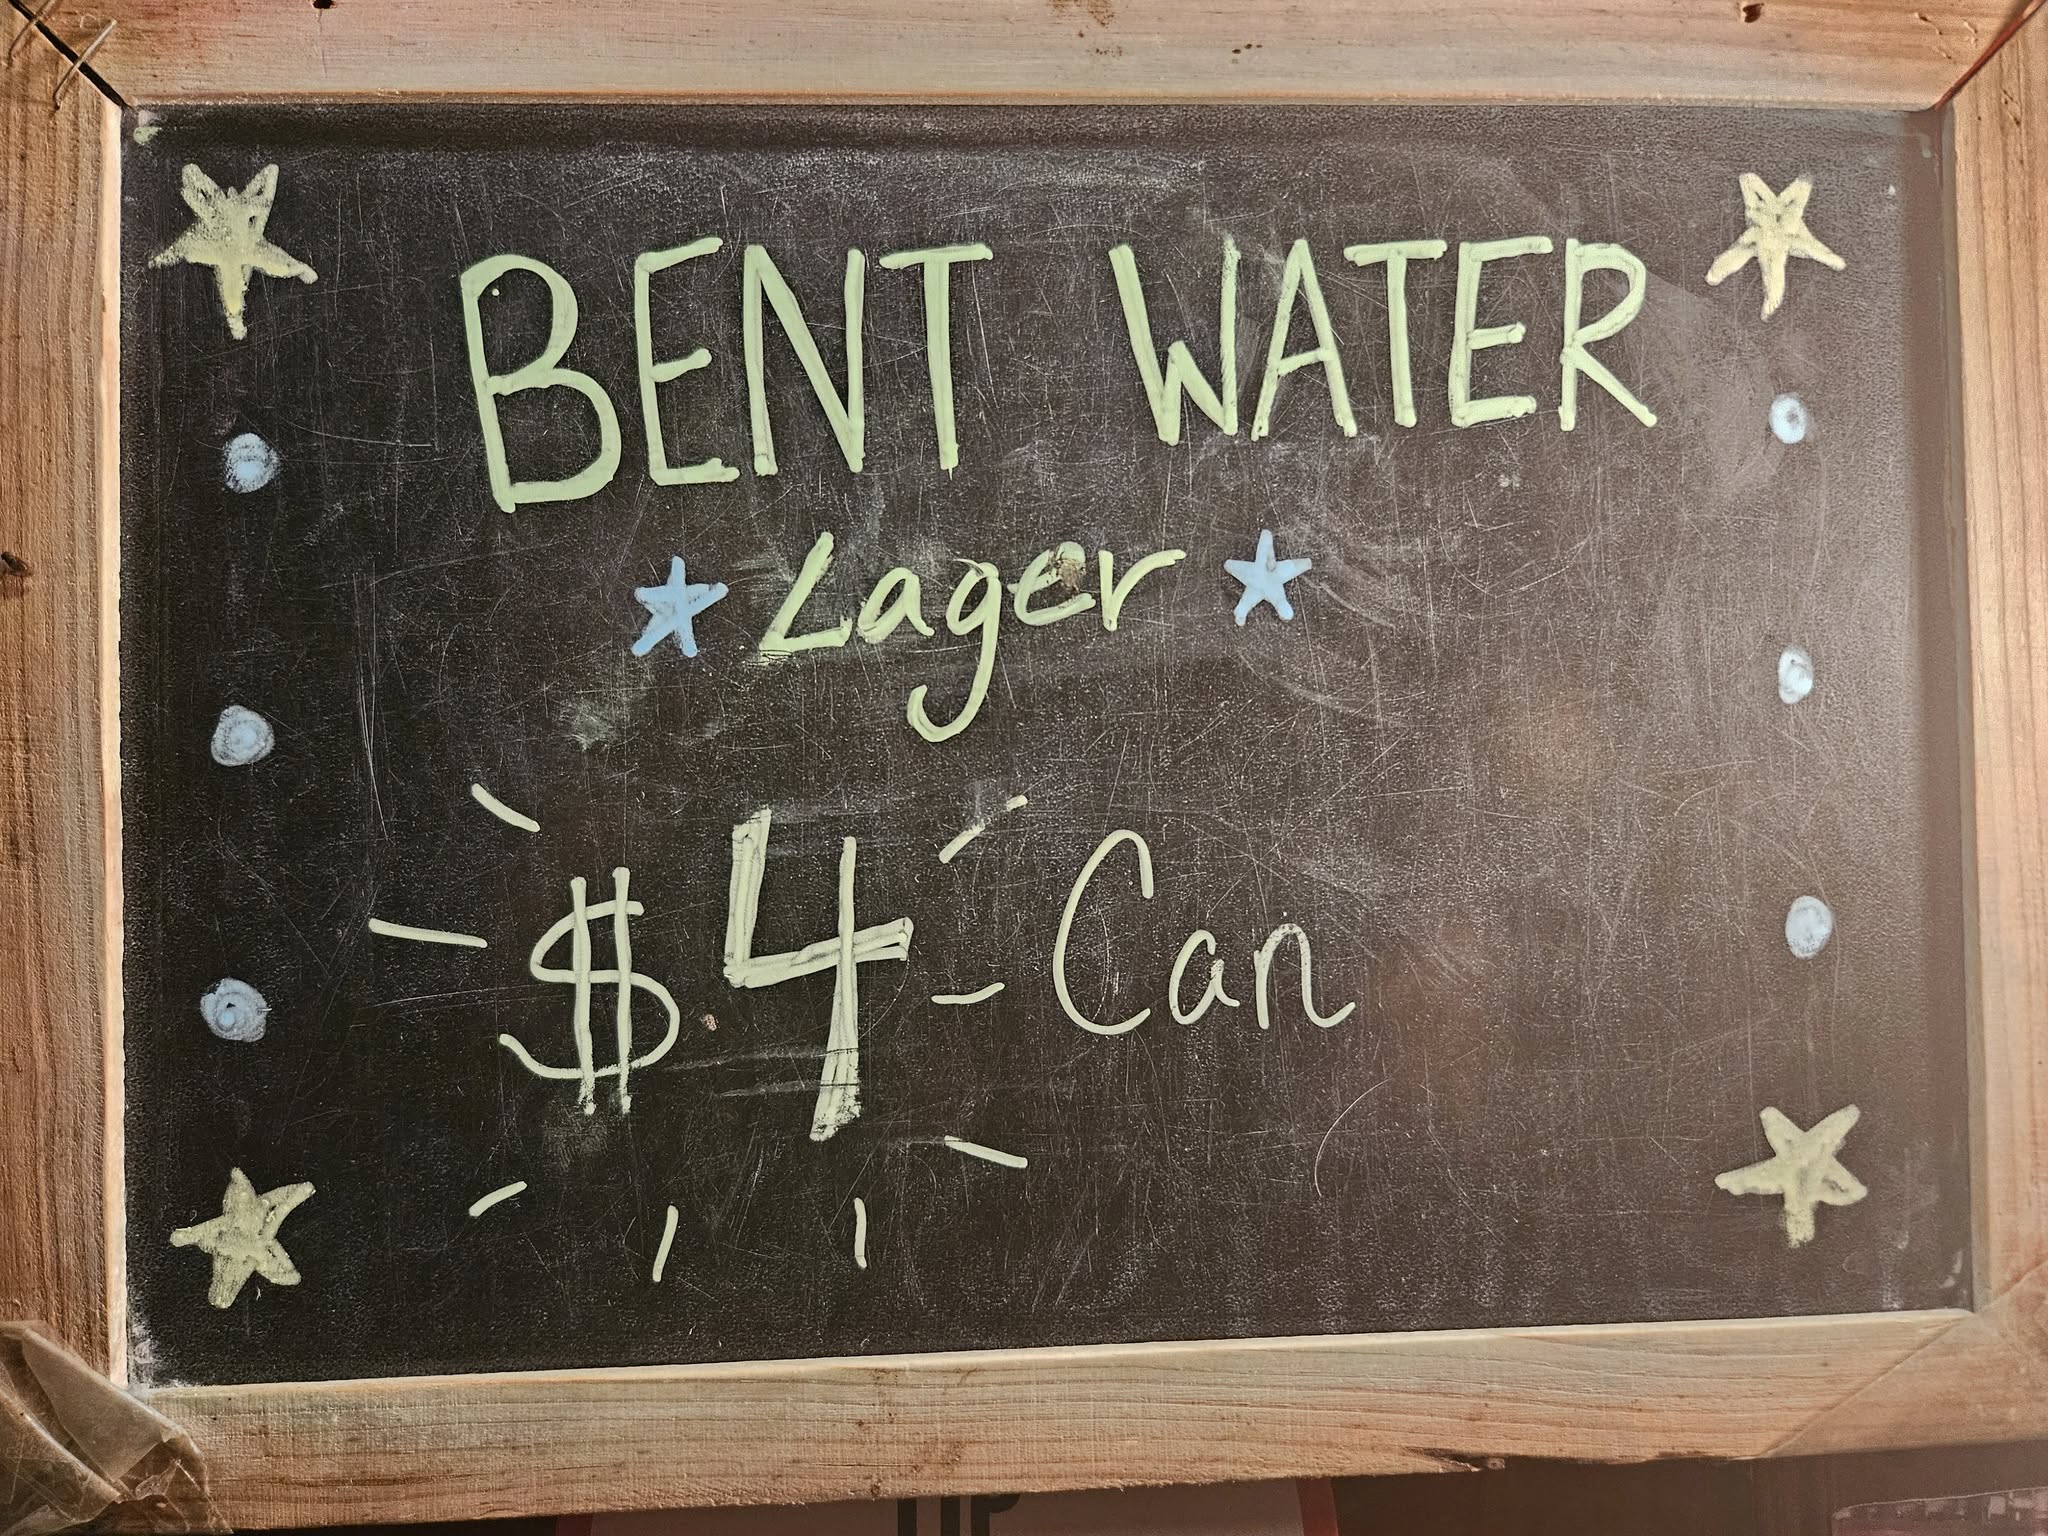 BENT WATER
Lager
$4 Can